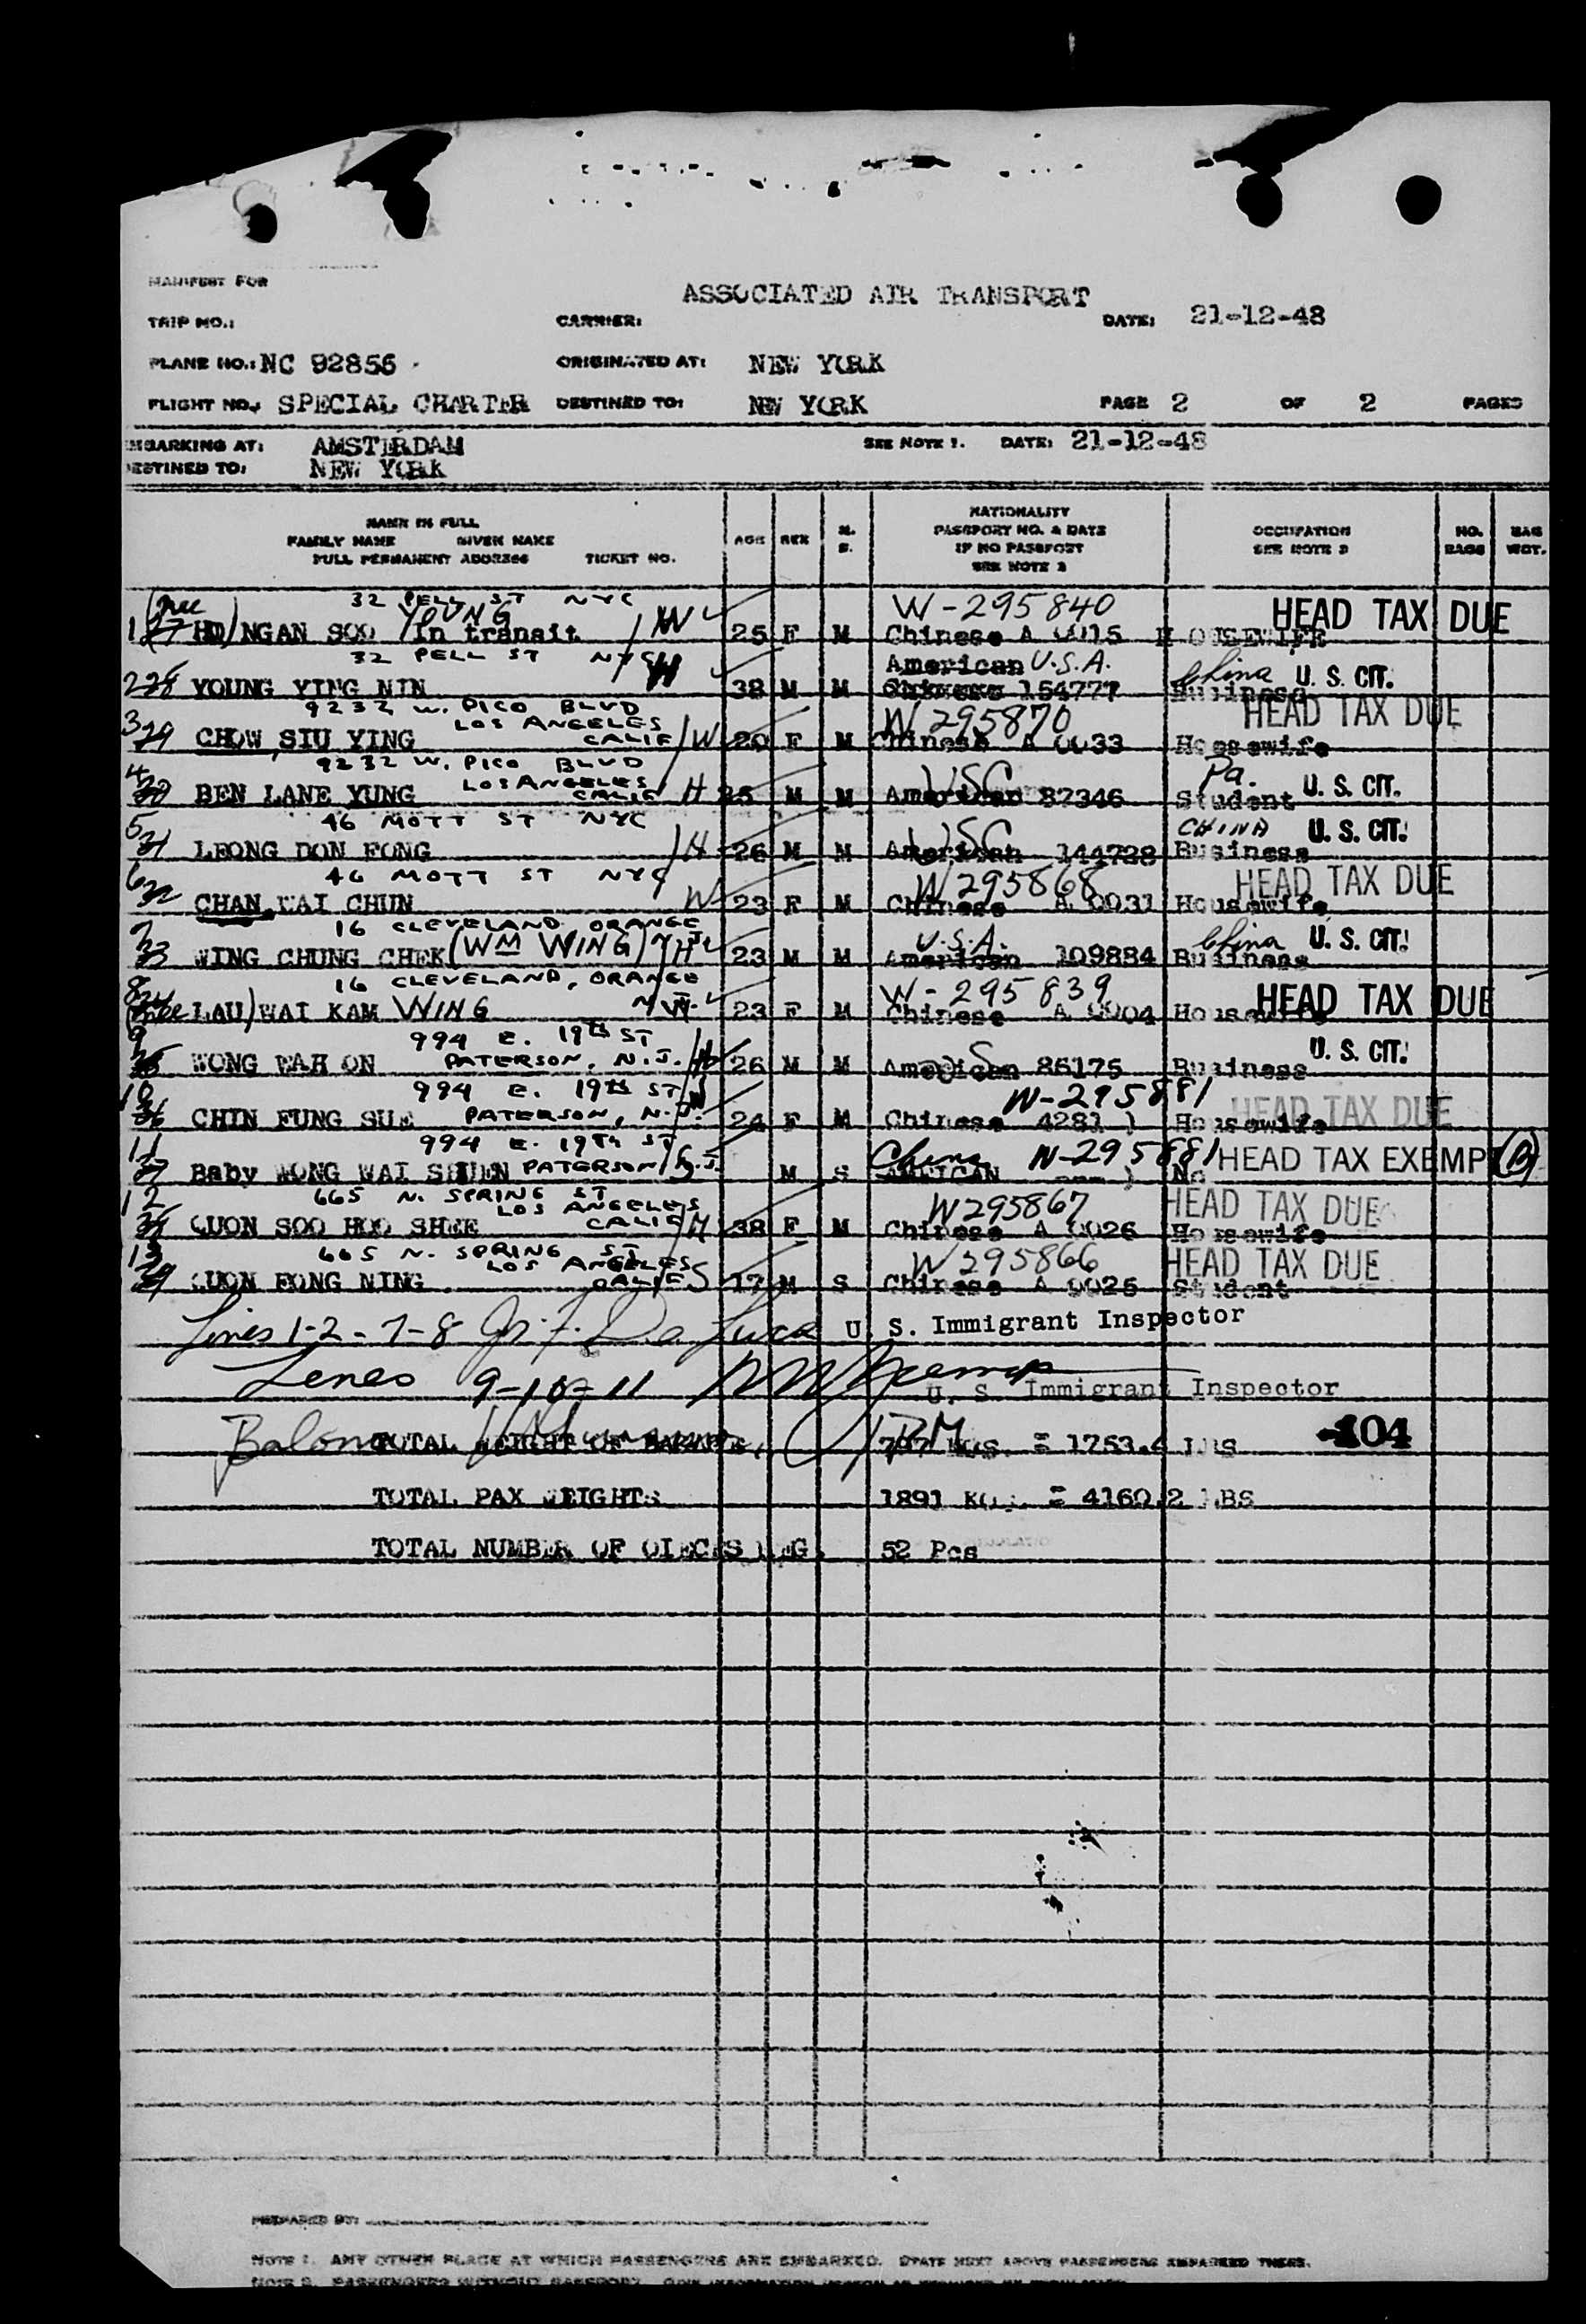 MANIFEST FOR
ASSOCIATED AIR TRANSPORT
TRIP NO.: CARRIER: DATE: 21-12-48
PLANE NO.: NC 92856 ORIGINATED AT: NEW YORK
FLIGHT NO. SPECIAL CHARTER DESTINED TO: NEW YORK PAGE 2 OF 2 PAGES
EMBARKING AT: AMSTERDAM SEE NOTE 1. DATE: 21-12-48
DESTINED TO: NEW YORK
NAME IN FULL
FAMILY NAME GIVEN NAME
FULL PERMANENT ADDRESS TICKET NO.
AGE SEX M. S.
NATIONALITY
PASSPORT NO. & DATE
IF NO PASSPORT
SEE NOTE 2
OCCUPATION
SEE NOTE 3
NO. BAGS
BAG WGT.
32 PELL ST NYC W-295840 HEAD TAX DUE
1 27 (nee HO) NGAN SOO YOUNG In transit W 25 F M Chinese A 0015 HOUSEWIFE
32 PELL ST NYC American U.S.A. China U. S. CIT.
2 28 YOUNG YING NIN H 38 M M 154777 Business
9232 W. PICO BLVD W 295870 HEAD TAX DUE
LOS ANGELES
3 29 CHOW SIU YING CALIF W 20 F M Chinese A 0033 Housewife
9232 W. PICO BLVD USC Pa. U. S. CIT.
LOS ANGELES
4 BEN LANE YUNG CALIF H 25 M M American 87346 Student
46 MOTT ST NYC USC CHINA U. S. CIT.
5 31 LEONG DON FONG H 26 M M American 144728 Business
46 MOTT ST NYC W 295868 HEAD TAX DUE
6 32 CHAN WAI CHUN W 23 F M Chinese A 0031 Housewife
16 CLEVELAND ORANGE U.S.A. China U. S. CIT.
7 33 WING CHUNG CHEK (WM WING) N.J. H 23 M M American 109884 Business
16 CLEVELAND, ORANGE W-295839 HEAD TAX DUE
8 34 (nee LAU) WAI KAM WING N.J. W 23 F M Chinese A 0004 Housewife
994 E. 19th ST U. S. CIT.
9 WONG WAH ON PATERSON, N.J. H 26 M M American 86175 Business
994 E. 19th ST W-295881 HEAD TAX DUE
10 36 CHIN FUNG SUE PATERSON, N.J. W 24 F M Chinese 4281 ) Housewife
994 E. 19th ST China W-295881 HEAD TAX EXEMPT (B)
11 37 Baby WONG WAI SHUEN PATERSON N.J. M S ) No
665 N. SPRING ST W295867 HEAD TAX DUE
LOS ANGELES
12 QUON SOO HOO SHEE CALIF M 38 F M Chinese A 0026 Housewife
665 N. SPRING ST W295866 HEAD TAX DUE
LOS ANGELES
13 39 QUON FONG NING CALIF S 17 M S Chinese A 0025 Student
Lines 1-2-7-8 U. S. Immigrant Inspector
Lines 9-10-11 U. S. Immigrant Inspector
Balance
TOTAL WEIGHT OF 797 KGS. = 1753.4 LBS 104
TOTAL PAX WEIGHTS 1891 KGS. = 4160.2 LBS
TOTAL NUMBER OF OIECES BAG. 52 Pcs
PREPARED BY:
NOTE 1. ANY OTHER PLACE AT WHICH PASSENGERS ARE EMBARKED. STATE NEXT ABOVE PASSENGERS EMBARKED THERE.